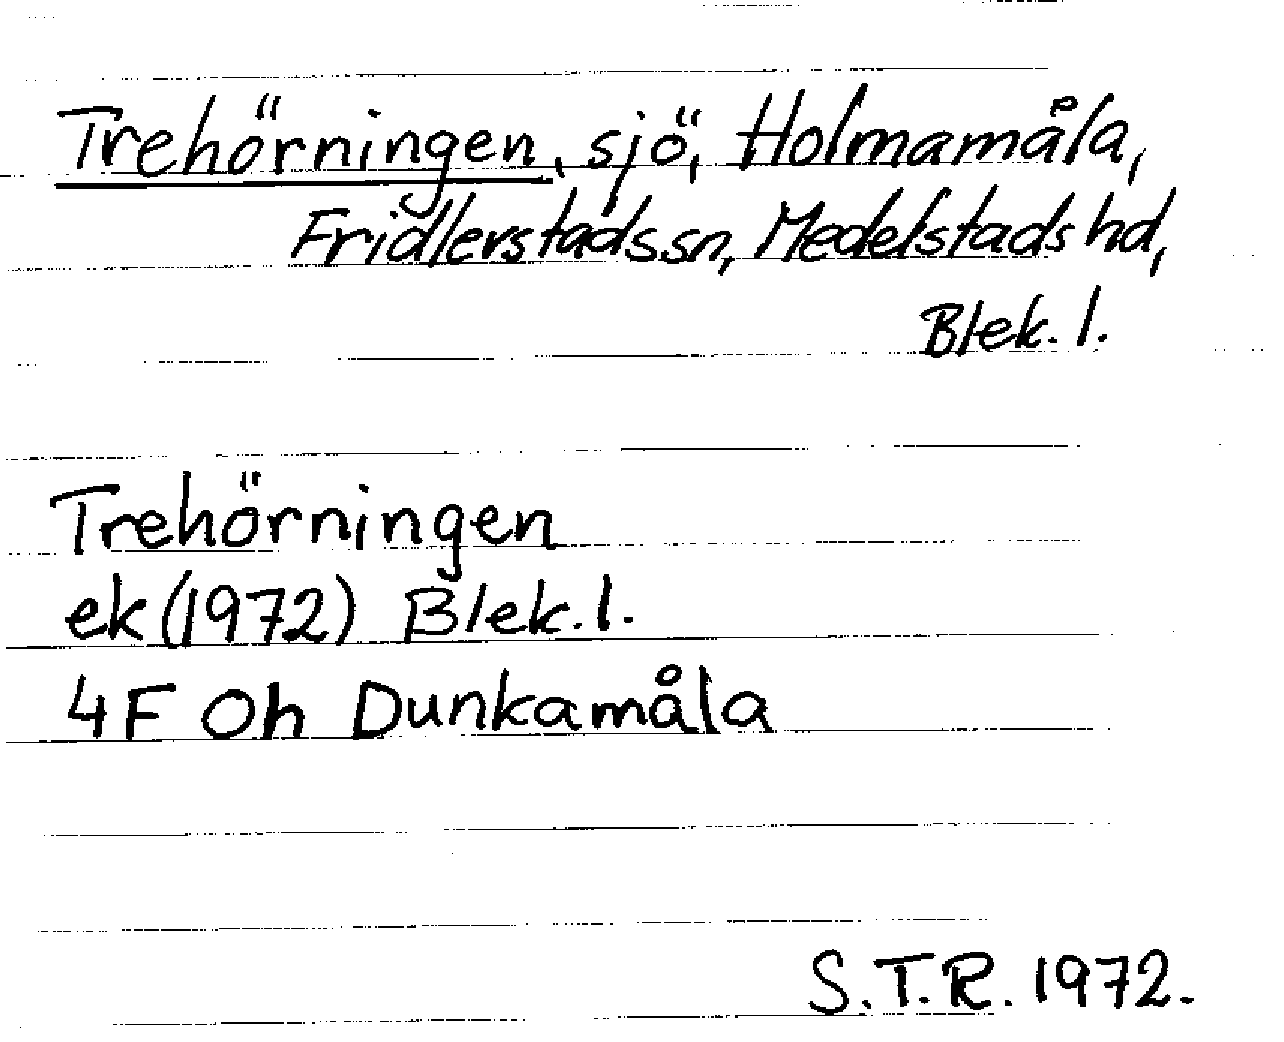 Trehörningen, sjö, Holmamåla,
Fridlevstads sn, Medelstads hd,
Blek. l.
Trehörningen
ek (1972) Blek. l.
4F Oh Dunkamåla
S.T.R. 1972.